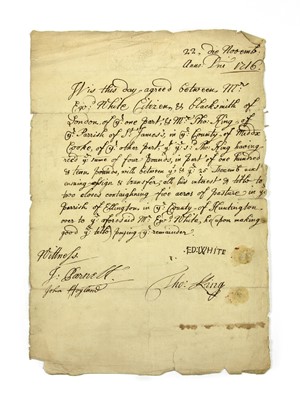 22. die Novemb.
Anno Dni 1716.
It is this day agreed between Mr.
Edd. White Citizen & Blacksmith of
London, of ye. one part & Mr. Tho: King, of
ye. Parish of St. James's, in ye. County of Middx
Cooke, of ye. other part, yt. ye. sd. Tho: King having
recd. ye. sume of four Pounds, in part of one hundred
& tenn Pounds, will between ys. & ye. 25 Decemb. next
assign & transfer all his interest & title to
two closes containghing four acres of Pasture in ye
Parish of Ellington, in ye. County of Huntington
over to ye. aforesaid Mr. Edd. White, he upon making
good ye. title paying ye. remainder.
Wittness.
J: Darnell.
John Hoyland
ED:WHITE
Tho: King